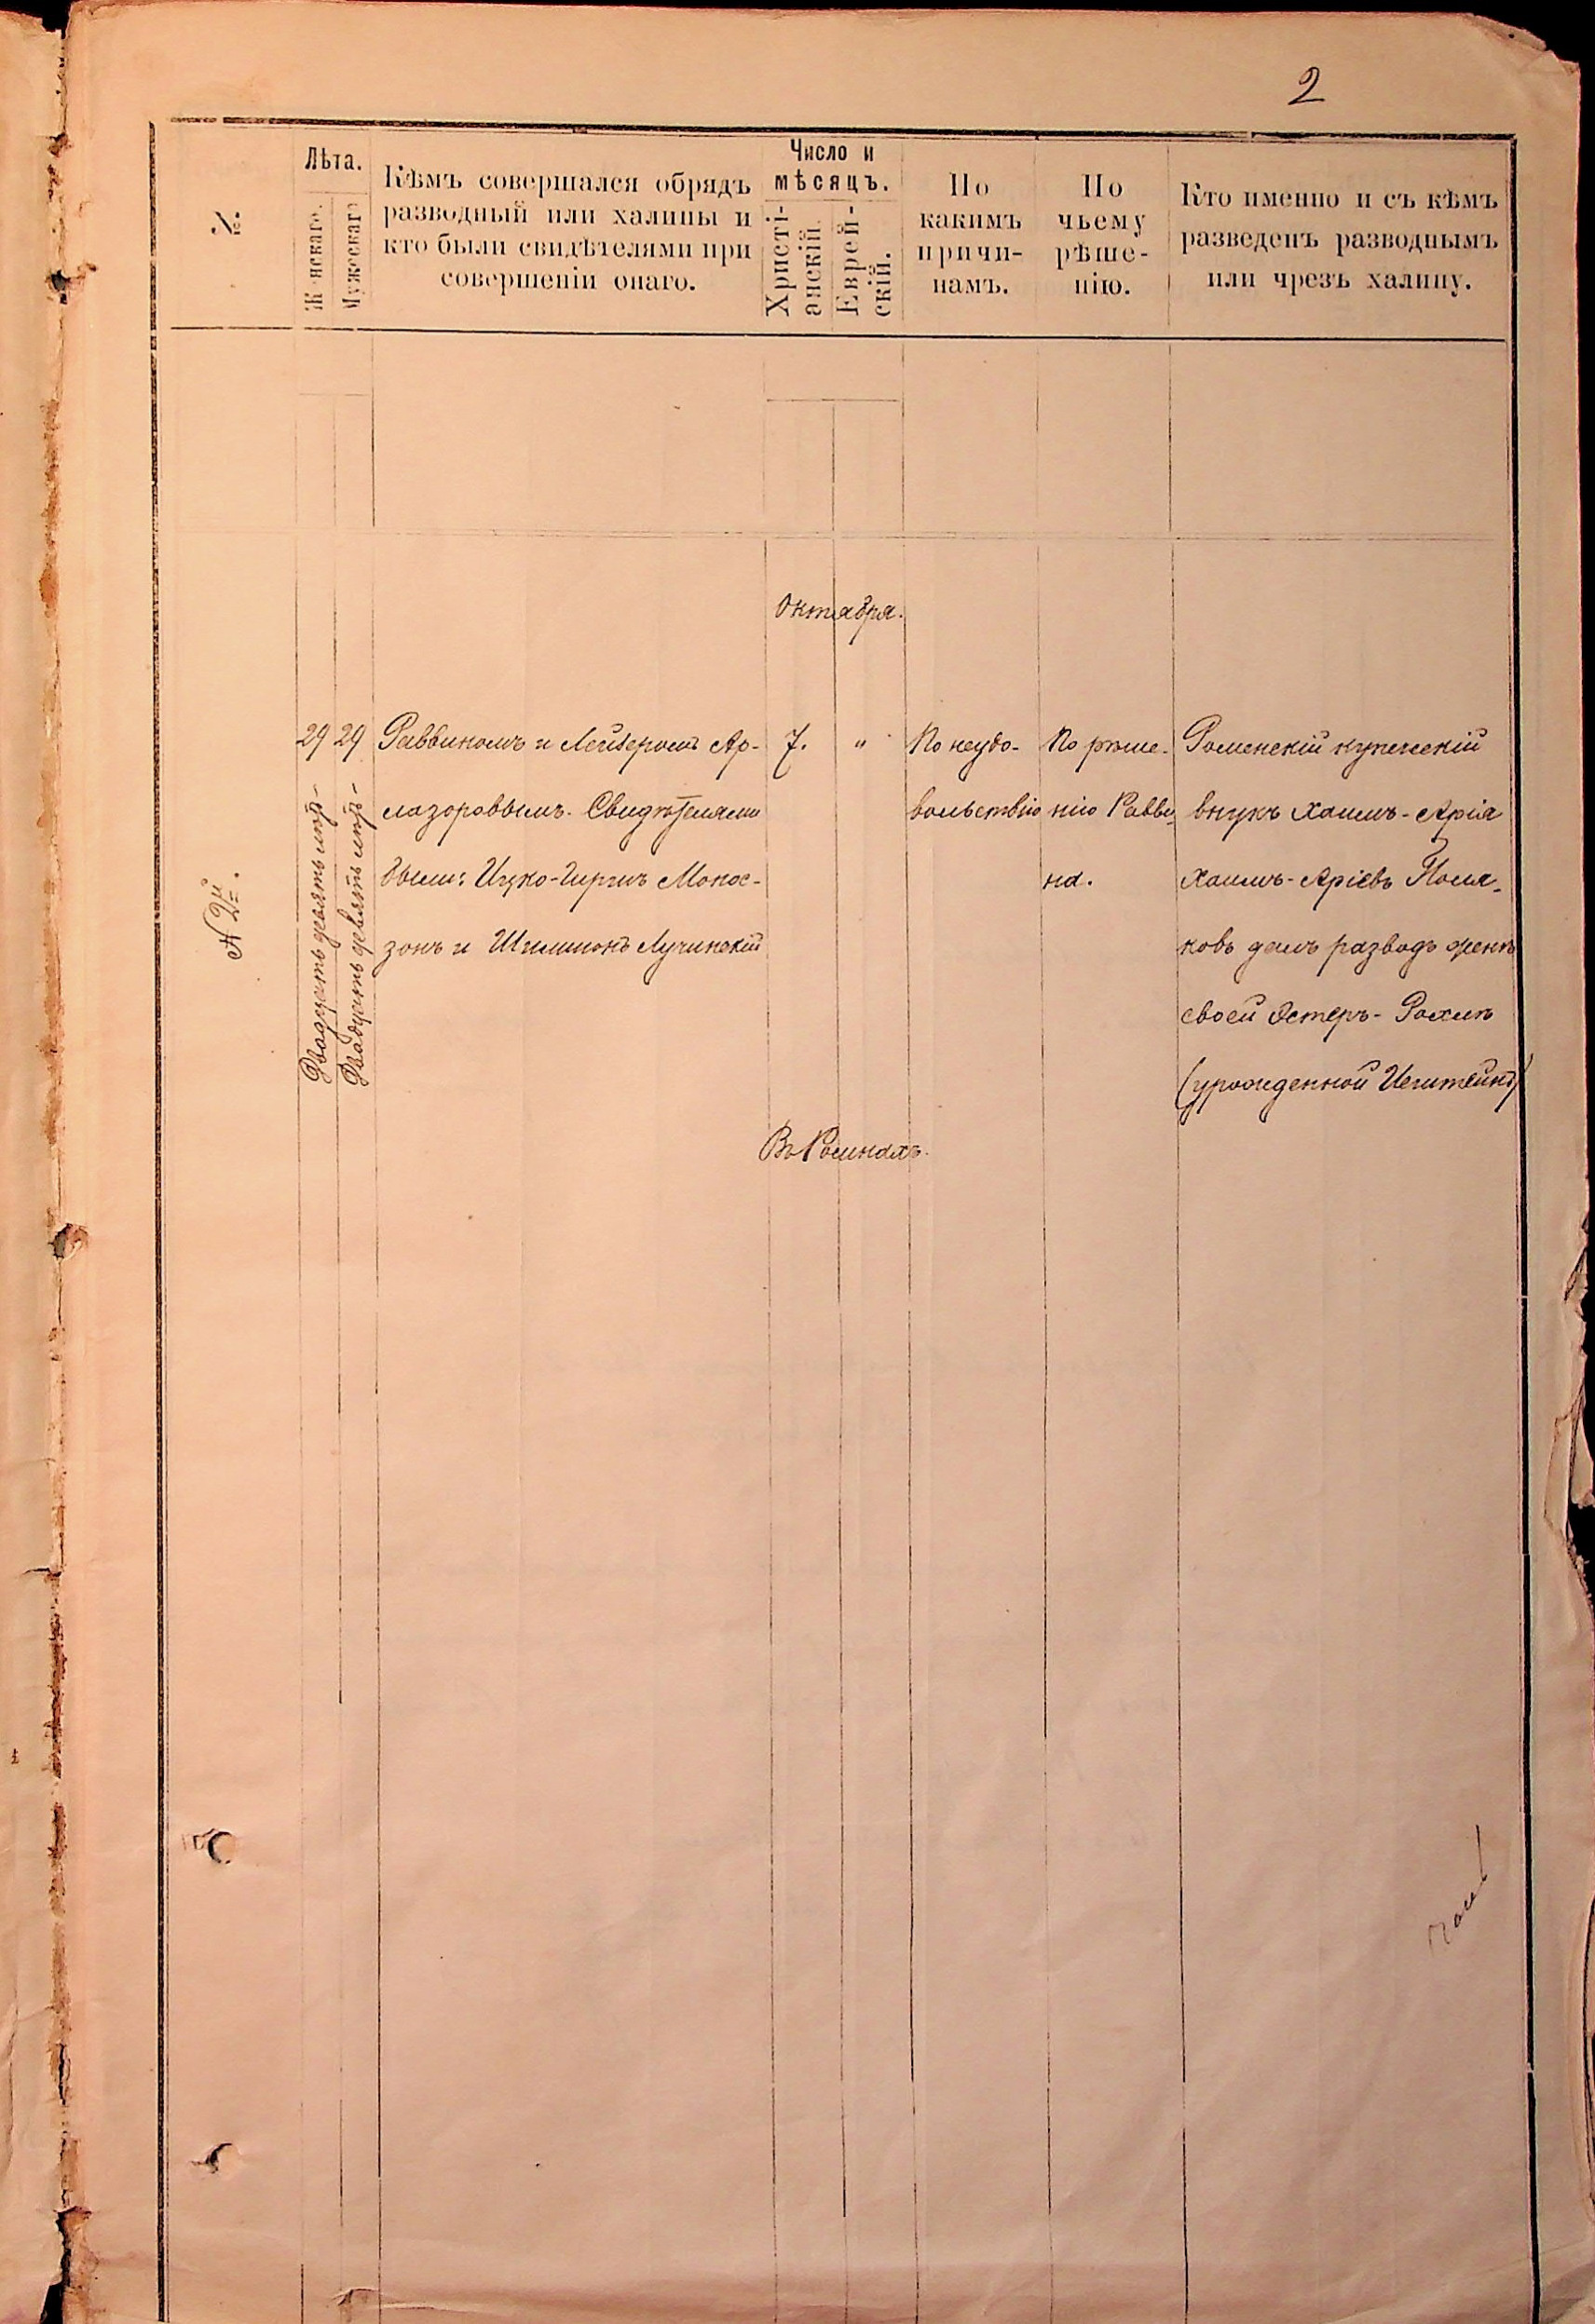 2
№.
Лѣта.
Женскаго.
Мужескаго
Кѣмъ совершался обрядъ
разводный или халицы и
кто были свидѣтелями при
совершеніи онаго.
Число и
мѣсяцъ.
Христі-
анскій.
Еврей-
скій.
По
какимъ
причи-
намъ.
По
чьему
рѣше-
нію.
Кто именно и съ кѣмъ
разведенъ разводнымъ
или чрезъ халицу.
Октября.
№ 2й.
29
Двадцать девять лѣтъ
29
Двадцать девять лѣтъ
Раввиномъ и Лейзеромъ Ар-
лазоровымъ. Свидѣтелями
были: Ицко-Гиршъ Монос-
зонъ и Шлимонъ Лучинскій
7.
"
По неудо-
вольствію
По рѣше-
нію Равви-
на.
Роменскій купеческій
внукъ Хаимъ-Арія
Хаимъ-Аріевъ Поля-
ковъ далъ разводъ женѣ
своей Эстеръ-Рохлѣ
(урожденной
Въ Ромнахъ.